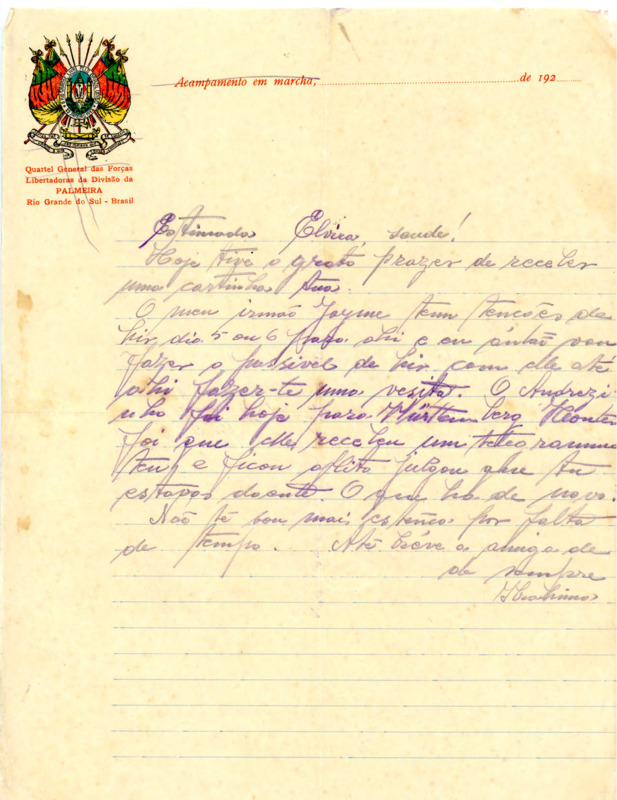 Acampamento em marcha, de 192
Quartel General das Forças
Libertadoras da Divisão da
PALMEIRA
Rio Grande do Sul - Brasil
Estimada Elvira, saude!
Hoje tive o grato prazer de receber
uma cartinha tua.
O meu irmão Jayme tem tenções de
hir dia 5 ou 6 para ahi e eu então vou
fazer o possivel de hir com elle até
ahi fazer-te uma vesita. O Andrezi
nho foi hoje para Würtemberg Honten
foi que elle recebeu um telegramma
teu e ficou aflito julgou que tu
estavas doente. O que ha de novo.
Não te sou mais por falta
de tempo. Até bréve a amiga de
de sempre